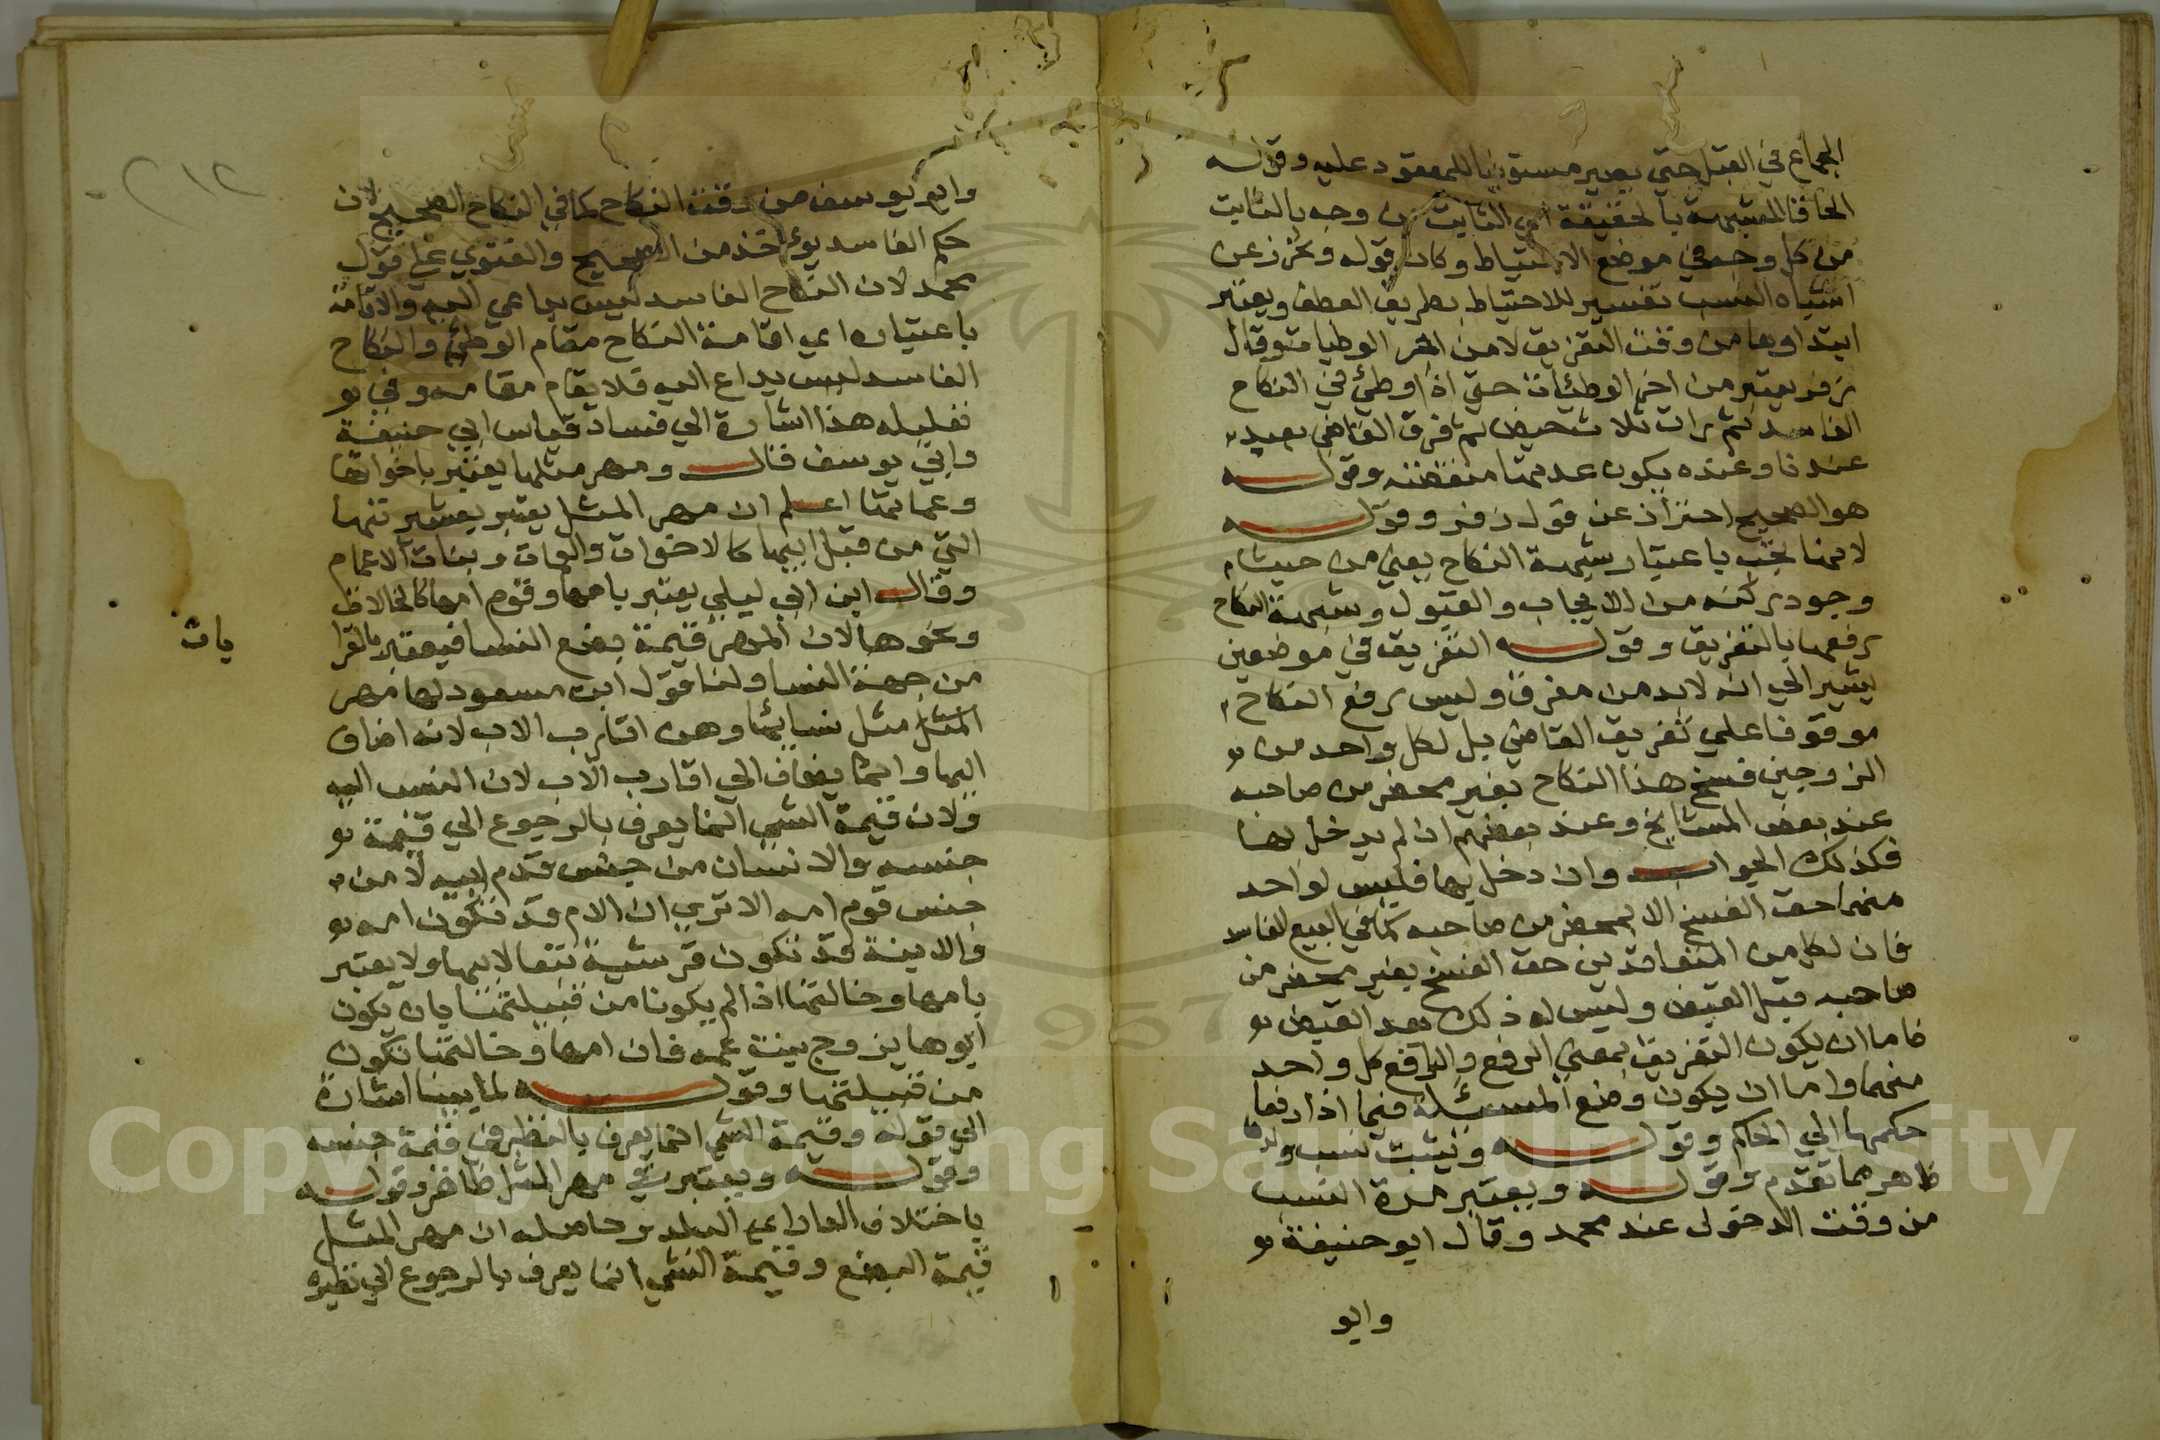 الجماع في القبل حتي يصير مستوفيا للمعقود عليه وقوله
الحاقا للشبهة بالحقيقة اي الثابت من وجه بالثابت
من كل وجه في موضع الاحتياط وكان قوله وتحرزعن
اشتباه النسب تفسير للاحتياط بطريق العطف ويعتبر
ابتداوها من وقت التفريق لا من اخر الوطيات وقال
زفر يعتبر من اخر الوطيات حتي اذا وطي في النكاح
الفاسد ثم رات ثلاث حيض ثم فرق القاضي تعيد
عندنا وعنده يكون عدتها منقضية وقوله
هو الصحيح احتراز عن قول زفر وقوله
لانها تجب باعتبار شبهة النكاح يعني من حيث
وجود ركنه من الايجاب والقبول وشبهة النكاح
رفعها بالتفريق وقوله التفريق في موضعين
يشير الي انه لابد من مفرق وليس رفع النكاح
موقوفا علي تفريق القاضي بل لكل واحد من
الزوجين فسخ هذا النكاح بغير محضر من صاحبه
عند بعض المشايخ وعند بعضهم ان لم يدخل بها
فكذلك الجواب وان دخل بها فليس لواحد
منهما حق الفسخ الا بمحضر من صاحبه كما في البيع الفاسد
فان لكل من المتعاقدين حق الفسخ بغير محضر من
صاحبه قبل القبض وليس له ذلك بعد القبض
فاما ان يكون التفريق بمعني الرفع والرافع كل واحد
منهما واما ان يكون وضع المسئلة فيما اذا رفعا
حكمهما الي الحاكم وقوله ويثبت نسب ولدها
ظاهر مما تقدم وقوله ويعتبر مدة النسب
من وقت الدخول عند محمد وقال ابو حنيفة
وابو
٢١٢
وابو يوسف من وقت النكاح كما في النكاح الصحيح لان
حكم الفاسد يؤخذ من الصحيح والفتوي علي قول
محمد لان النكاح الفاسد ليس بداعي اليه والاقامة
باعتباره اي اقامة النكاح مقام الوطئ والنكاح
الفاسد ليس بداع اليه فلا يقام مقامه وفي
تعليله هذا اشارة الي فساد قياس ابي حنيفة
وابي يوسف قال ومهر مثلها يعتبر باخواتها
وعماتها اعلم ان مهر المثل يعتبر بعشيرتها
التي من قبل ابيها كالاخوات والعمات وبنات الاعمام
وقال ابن ابي ليلي يعتبر بامها وقوم امها كالخالات
ونحوها لان المهر قيمة بضع النسا فيعتبر بالقرا
بات
من جهة النسا ولنا قول ابن مسعود لها مهر
المثل مثل نسائها وهن اقارب الاب لانه اضاف
اليها وانما يضاف الي اقارب الاب لان النسب اليه
ولان قيمة الشي انما يعرف بالرجوع الي قيمة
جنسه والانسان من جنس قوم ابيه لا من
جنس قوم امه الا تري ان الام قد تكون امه
والابنة قد تكون قرشية تبعا لابيها ولا يعتبر
بامها وخالتها اذا لم يكونا من قبيلتها بان يكون
ابوها يزوج بينة عمه فان امها وخالتها تكون
من قبيلتها وقوله لما بينا اشارة
الي قوله وقيمة الشي انما يعرف بالنظر في قيمة جنسه
وقوله ويعتبر في مهر المثل ظاهر وقوله
باختلاف الدار اي البلد وحاصله ان مهر المثل
قيمة البضع وقيمة الشي انما يعرف بالرجوع الي نظيره
Copyright © King Saud University
1957